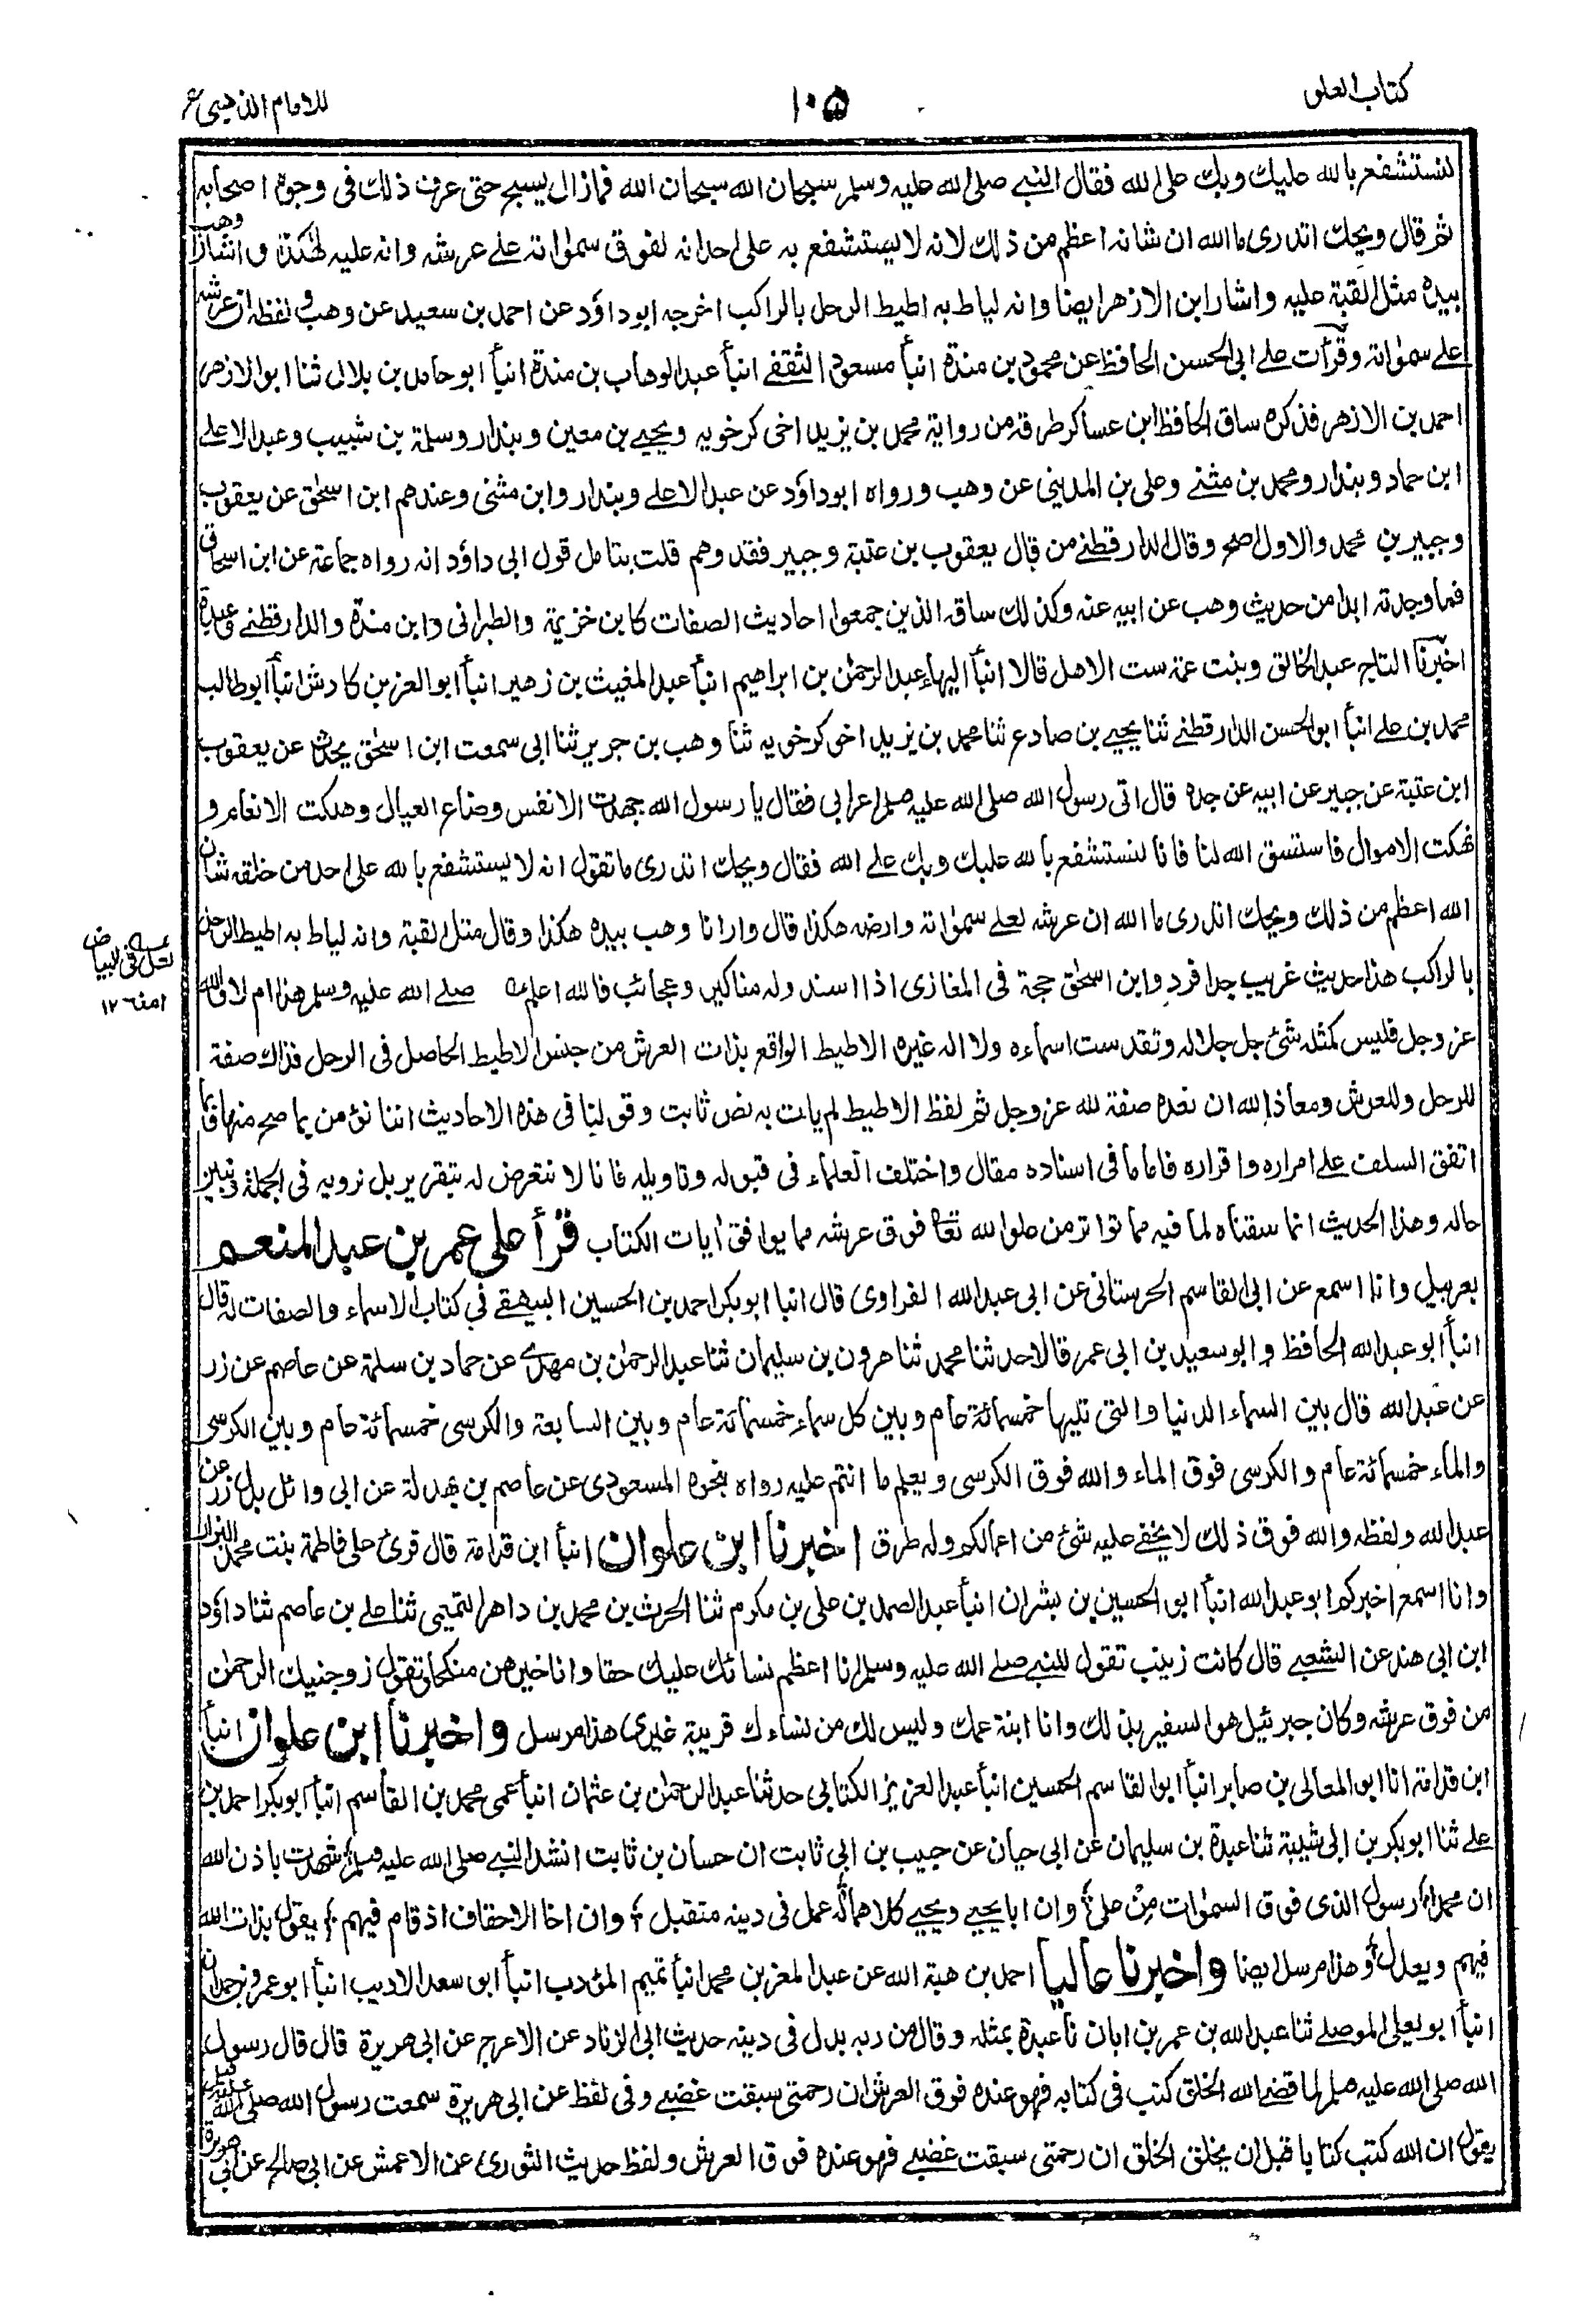 كتاب العلو
١٠٥
للامام الذهبي
لنستشفع بالله عليك وبك على الله فقال النبي صلى الله عليه وسلم سبحان الله سبحان الله فمازال يسبح حتى عرف ذلك فى وجوه اصحابه
ثم قال ويحك اتدرى ما الله ان شانه اعظم من ذلك لانه لا يستشفع به على احد انه لفوق سمواته على عرشه وانه عليه لهكذا واشار وهب
بيده مثل القبة عليه واشار ابن الازهر ايضا وانه لياط به اطيط الرحل بالراكب اخرجه ابو داؤد عن احمد بن سعيد عن وهب ولفظه ان عرشه
على سمواته وقرأت على ابى الحسن الحافظ عن محمود بن مندة انبأ مسعود الثقفى انبأ عبد الوهاب بن مندة انبأ ابو حامد بن بلال ثنا ابو الازهر
احمد بن الازهر فذكره ساق الحافظ ابن عساكر طرقه من رواية محمد بن يزيد اخى كرخويه ويحيى بن معين وبندار وسلمة بن شبيب وعبد الاعلى
ابن حماد وبندار ومحمد بن مثنى وعلى بن المدينى عن وهب ورواه ابو داؤد عن عبد الاعلى وبندار وابن مثنى وعندهم ابن اسحٰق عن يعقوب
وجبير بن محمد والاول اصح وقال الدارقطنى من قال يعقوب بن عتبة وجبير فقد وهم قلت بتامل قول ابى داؤد انه رواه جماعة عن ابن اسحاق
فما وجدته ابدا من حديث وهب عن ابيه عنه وكذلك ساقه الذين جمعوا احاديث الصفات كابن خزيمة والطبرانى وابن مندة والدارقطنى وعدة
اخبرنا التاج عبد الخالق وبنت عمه ست الاهل قالا انبأ البهاء عبد الرحمٰن بن ابراهيم انبأ عبد المغيث بن زهير انبأ ابو العز بن كادش انبأ ابو طالب
محمد بن على انبأ ابو الحسن الدارقطنى ثنا يحيى بن صاعد ثنا محمد بن يزيد اخى كرخويه ثنا وهب بن جرير ثنا ابى سمعت ابن اسحٰق يحدث عن يعقوب
ابن عتبة عن جبير عن ابيه عن جده قال اتى رسول الله صلى الله عليه وسلم اعرابى فقال يا رسول الله جهدت الانفس وضاع العيال وهلكت الانعام و
نهكت الاموال فاستسق الله لنا فانا لنستشفع بالله عليك وبك على الله فقال ويحك اتدرى ما تقول انه لا يستشفع بالله على احد من خلقه شان
الله اعظم من ذلك ويحك اتدرى ما الله ان عرشه لعلى سمواته وارضه هكذا قال وارانا وهب بيده هكذا وقال مثل القبة وانه لياط به اطيط الرحل
بالراكب هذا حديث غريب جدا فرد وابن اسحٰق حجة فى المغازى اذا اسند وله مناكير وعجائب فالله اعلم صلى الله عليه وسلم هذا ام لا فالله
لعل فى البياض
عز وجل فليس كمثله شئ جل جلاله وتقدست اسماءه ولا اله غيره الاطيط الواقع بذات العرش من جنس الاطيط الحاصل فى الرحل فذاك صفة
للرحل وللعرش ومعاذ الله ان نعده صفة لله عز وجل ثم لفظ الاطيط لم يات به نص ثابت وقولنا فى هذه الاحاديث اننا نؤمن بما صح منها وبما
اتفق السلف على امراره واقراره فاما ما فى اسناده مقال واختلف العلماء فى قبوله وتاويله فانا لا نتعرض له بتقرير بل نرويه فى الجملة ونبين
حاله وهذا الحديث انما سقناه لما فيه مما تواتر من علو الله تعا فوق عرشه مما يوافق اٰيات الكتاب قرأ على عمر بن عبد المنعم
بعربيل وانا اسمع عن ابى القاسم الحرستانى عن ابى عبد الله الفراوى قال انبا ابو بكر احمد بن الحسين البيهقى فى كتاب الاسماء والصفات له قال
انبأ ابو عبد الله الحافظ وابو سعيد بن ابى عمر قالا حدثنا محمد ثنا هرون بن سليمان ثنا عبد الرحمٰن بن مهدى عن حماد بن سلمة عن عاصم عن زر
عن عبد الله قال بين السماء الدنيا والتى تليها خمسمائة عام وبين كل سماء خمسمائة عام وبين السابعة والكرسى خمسمائة عام وبين الكرسى
والماء خمسمائة عام والكرسى فوق الماء والله فوق الكرسى ويعلم ما انتم عليه رواه بنحوه المسعودى عن عاصم بن بهدلة عن ابى وائل بدل زر عن
عبد الله ولفظه والله فوق ذلك لا يخفى عليه شئ من اعمالكم وله طرق اخبرنا ابن علوان انبأ ابن قدامة قال قرئ على فاطمة بنت محمد البزار
وانا اسمع اخبركم ابو عبد الله انبأ ابو الحسين بن بشران انبأ عبد الصمد بن على بن مكرم ثنا الحرث بن محمد بن داهر التميمى ثنا على بن عاصم ثنا داؤد
ابن ابى هند عن الشعبى قال كانت زينب تقول للنبى صلى الله عليه وسلم انا اعظم نسائك عليك حقا وانا خيرهن منكحا تقول زوجنيك الرحمٰن
من فوق عرشه وكان جبرئيل هو السفير بذلك وانا ابنة عمك وليس لك من نساءك قريبة غيرى هذا مرسل واخبرنا ابن علوان انبأ
ابن قدامة انا ابو المعالى بن صابر انبأ ابو القاسم الحسين انبأ عبد العزيز الكتابى حدثنا عبد الرحمٰن بن عثمان انبأ عمى محمد بن القاسم انبأ ابو بكر احمد بن
على ثنا ابو بكر بن ابى شيبة ثنا عبدة بن سليمان عن ابى حيان عن حبيب بن ابى ثابت ان حسان بن ثابت انشد النبى صلى الله عليه وسلم شهدت باذن الله
ان محمدا رسول الذى فوق السموات من عل وان ابا يحيى ويحيى كلاهما له عمل فى دينه متقبل وان اخا الاحقاف اذ قام فيهم يقول بذات الله
فيهم ويعدل وهذا مرسل ايضا واخبرنا عاليا احمد بن هبة الله عن عبد المعز بن محمد انبأ تميم المؤدب انبأ ابو سعد الاديب انبأ ابو عمرو بن حمدان
انبأ ابو يعلى الموصلى ثنا عبد الله بن عمر بن ابان نا عبدة بمثله وقال من ربه بدل فى دينه حديث ابى الزناد عن الاعرج عن ابى هريرة قال قال رسول
الله صلى الله عليه وسلم لما قضى الله الخلق كتب فى كتابه فهو عنده فوق العرش ان رحمتى سبقت غضبى وفى لفظ عن ابى هريرة سمعت رسول الله صلى الله عليه وسلم
يقول ان الله كتب كتابا قبل ان يخلق الخلق ان رحمتى سبقت غضبى فهو عنده فوق العرش ولفظ حديث الثورى عن الاعمش عن ابى صالح عن ابى هريرة